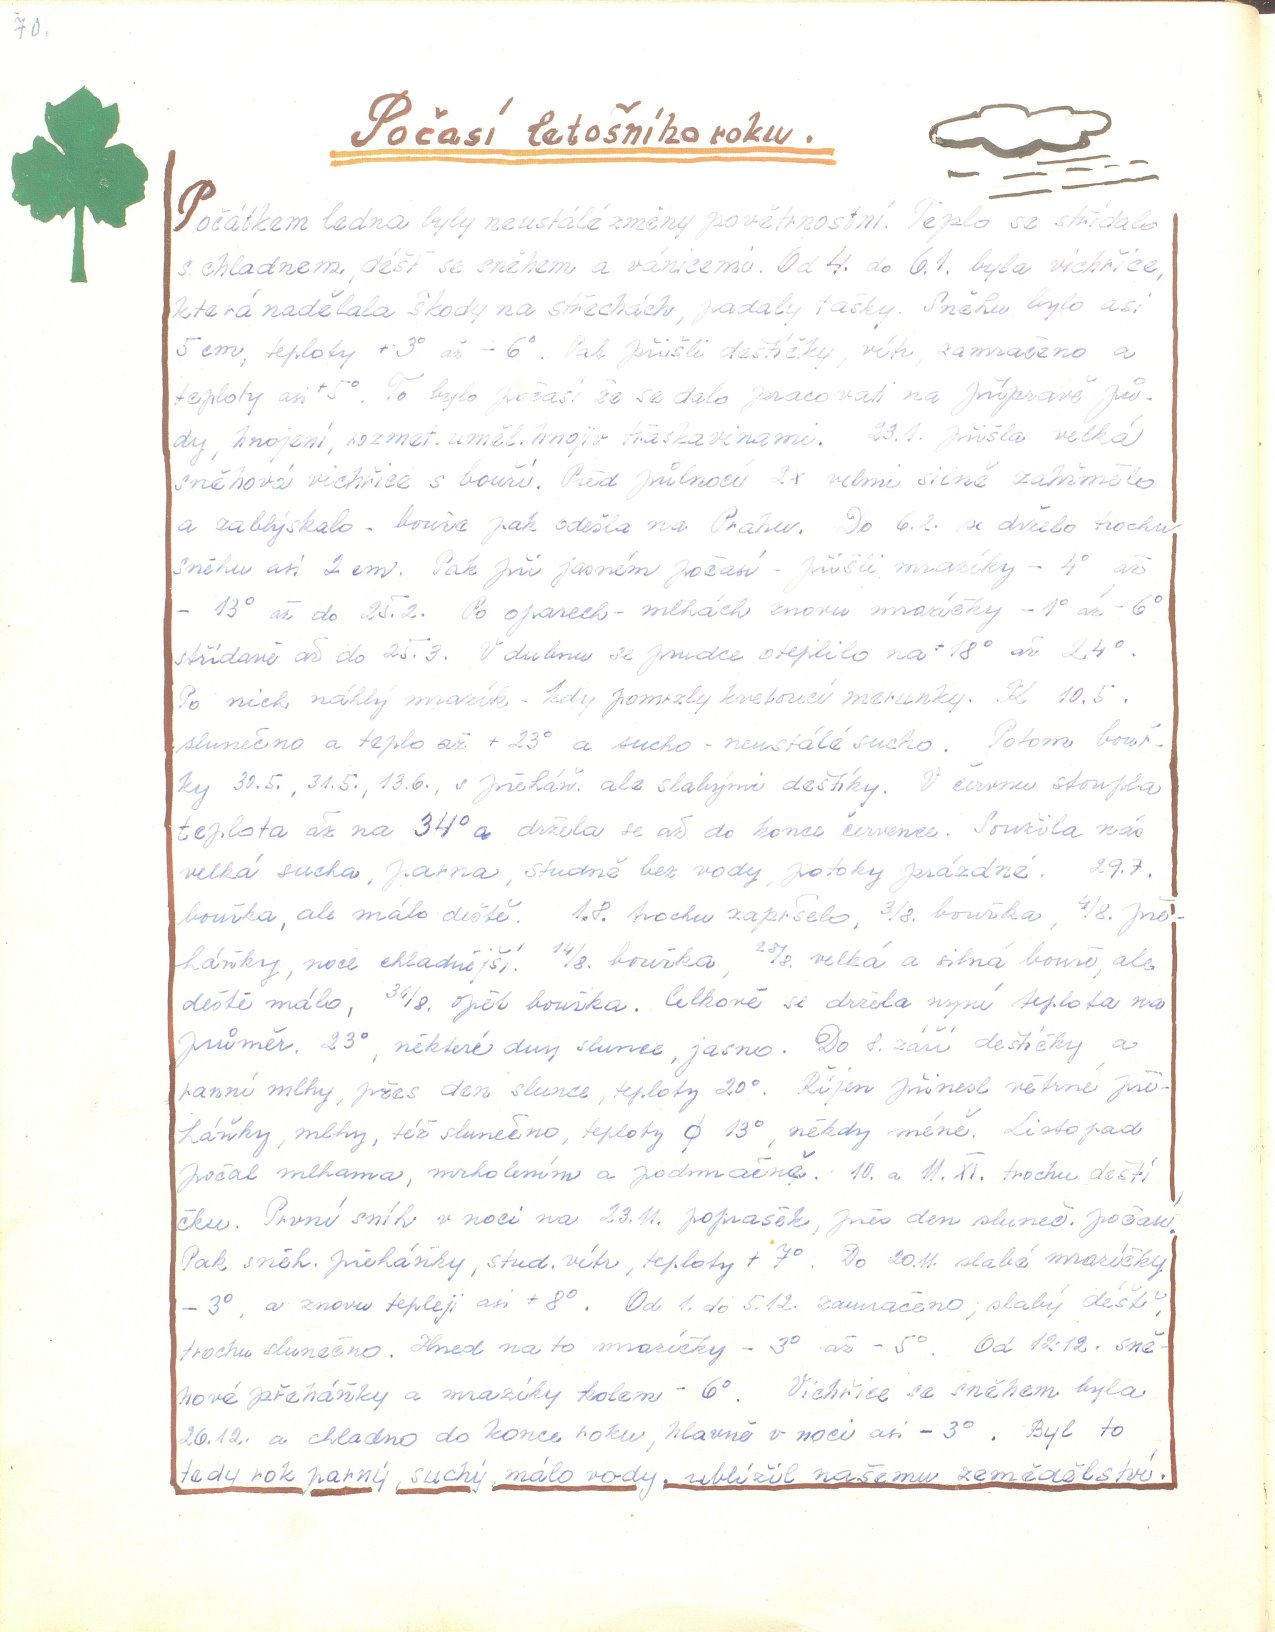 70.
Počasí letošního roku.
Počátkem ledna byly neustálé změny povětrnostní. Teplo se střídalo
s chladnem, déšť se sněhem a vánicemi. Od 4. do 6.1. byla vichřice,
která nadělala škody na střechách, padaly tašky. Sněhu bylo asi
5 cm, teploty +3° až -6°. Pak přišli deštíčky, vítr, zamračeno a
teploty asi +5°. To bylo počasí že se dalo pracovati na přípravě pů-
dy, hnojení, rozmet. uměl. hnojiv třaskavinami. 23.1. přišla velká
sněhová vichřice s bouří. Před půlnocí 2x velmi silně zahřmělo
a zablýskalo - bouře pak odešla na Prahu. Do 6.2. se drželo trochu
sněhu asi 2 cm. Pak při jasném počasí - přišli mrazíky - 4° až
- 13° až do 25.2. Po oparech - mlhách znovu mrazíčky -1° až -6°
střídavě až do 25.3. V dubnu se prudce oteplilo na +18° až 24°.
Po nich náhlý mrazík - kdy pomrzly kvetoucí meruňky. K 10.5.
slunečno a teplo až +23° a sucho - neustálé sucho. Potom bouř-
ky 30.5., 31.5., 13.6., s přeháň. ale slabými deštíky. V červnu stoupla
teplota až na 34° a držela se až do konce července. Soužila nás
velká sucha, parna, studně bez vody, potoky prázdné. 29.7.
bouřka, ale málo deště. 1.8. trochu zapršelo, 3/8. bouřka, 4/8. pře-
háňky, noce chladnější. 14/8. bouřka, 28/8. velká a silná bouře, ale
deště málo, 30/8. opět bouřka. Celkově se držela nyní teplota na
průměr. 23°, některé dny slunce, jasno. Do 8. září deštíčky a
ranní mlhy, přes den slunce, teploty 20°. Říjen přinesl větrné pře-
háňky, mlhy, též slunečno, teploty ϕ 13°, někdy méně. Listopad
počal mlhama, mrholením a podmračně. 10. a 11. XI. trochu deští
čku. První sníh v noci na 23.11. poprašek, přes den sluneč. počasí.
Pak sněh. přeháňky, stud. vítr, teploty +7°. Do 20.11. slabé mrazíčky
-3°, a znovu tepleji asi +8°. Od 1. do 5.12. zamračeno, slabý déšť,
trochu slunečno. Hned na to mrazíčky - 3° až - 5°. Od 12.12. sně-
hové přeháňky a mrazíky kolem - 6°. Vichřice se sněhem byla
26.12. a chladno do konce roku, hlavně v noci asi - 3°. Byl to
tedy rok parný, suchý, málo vody, ublížil našemu zemědělství.